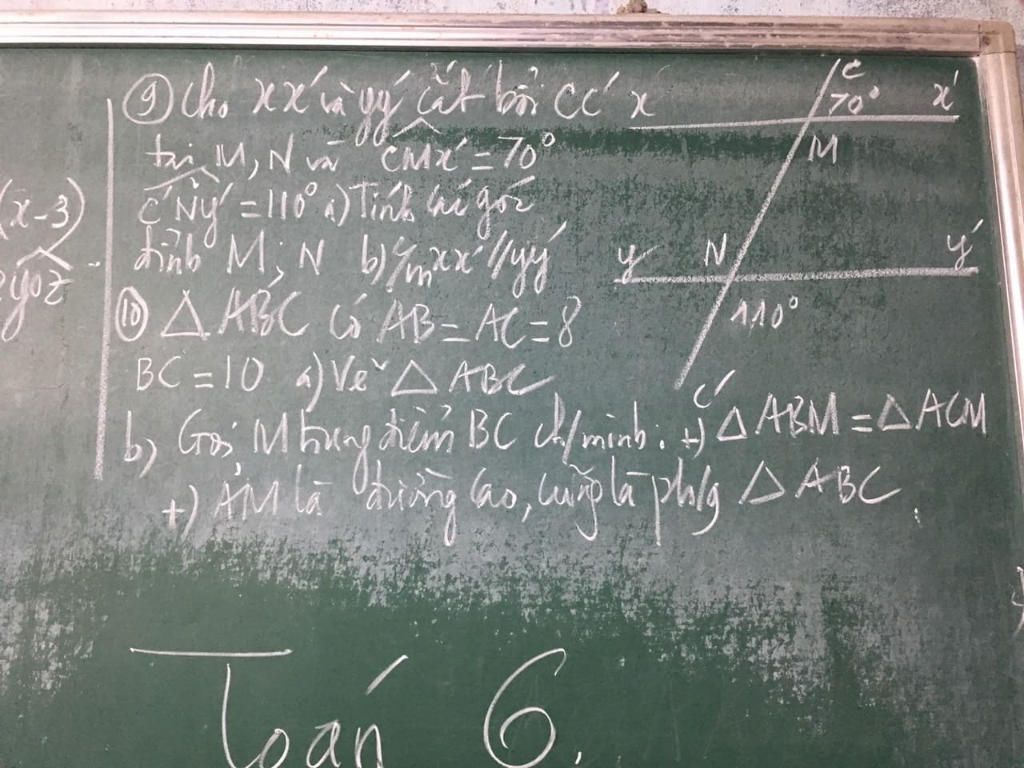 (x-3)
yoz
⑨ Cho xx' và yy' cắt bởi CC'
tại M, N và CMx' = 70°
C'Ny' = 110° a) Tính các góc
đỉnh M; N b) c/m xx' // yy'
C
70°
x
x'
M
y
N
y'
110°
C'
⑩ △ ABC có AB = AC = 8
BC = 10 a) Vẽ △ ABC
b) Gọi M trung điểm BC ch/minh: +) △ ABM = △ ACM
+) AM là đường cao, cũng là ph/g △ ABC
Toán 6.